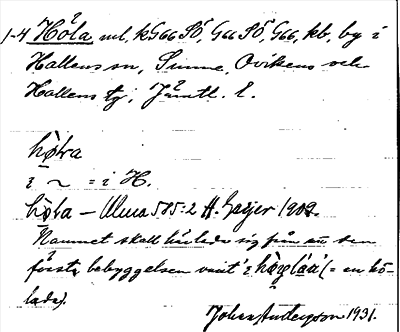 1-4 Höla ml, kG66SÖ, G66SÖ, G66, kb, by i
Hallens sn, Sunne, Ovikens och
Hallens tg; Jämtl. l.
hǫ̀ra
i ~ = i H.
– Ulma 585:2 H. Geijer 1902.
Namnet skall härleda sig från att den
första bebyggelsen varit (= en hö-
lada).
Johan Anderson 1931.